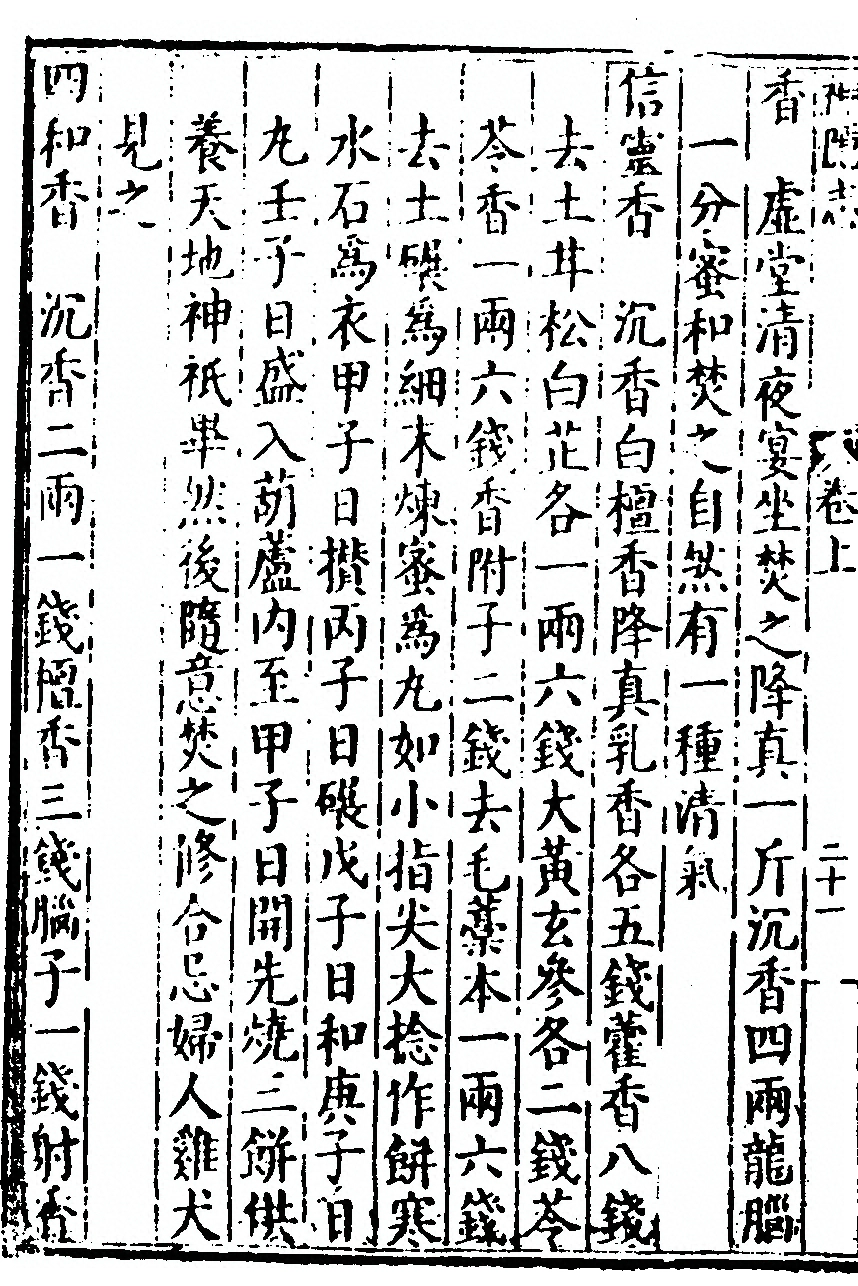 卷上
二十一
香　虛堂清夜宴坐焚之降真一斤沉香四兩龍腦
一分蜜和焚之自然有一種清氣
信靈香　沉香白檀香降真乳香各五錢藿香八錢
去土甘松白芷各一兩六錢大黃玄參各二錢苓
苓香一兩六錢香附子二錢去毛藁本一兩六錢
去土碾爲細末煉蜜爲丸如小指尖大捻作餅寒
水石爲衣甲子日攢丙子日碾戊子日和庚子日
丸壬子日盛入葫蘆内至甲子日開先燒三餅供
養天地神祇畢然後隨意焚之修合忌婦人雞犬
見之
四和香　沉香二兩一錢檀香三錢腦子一錢射香